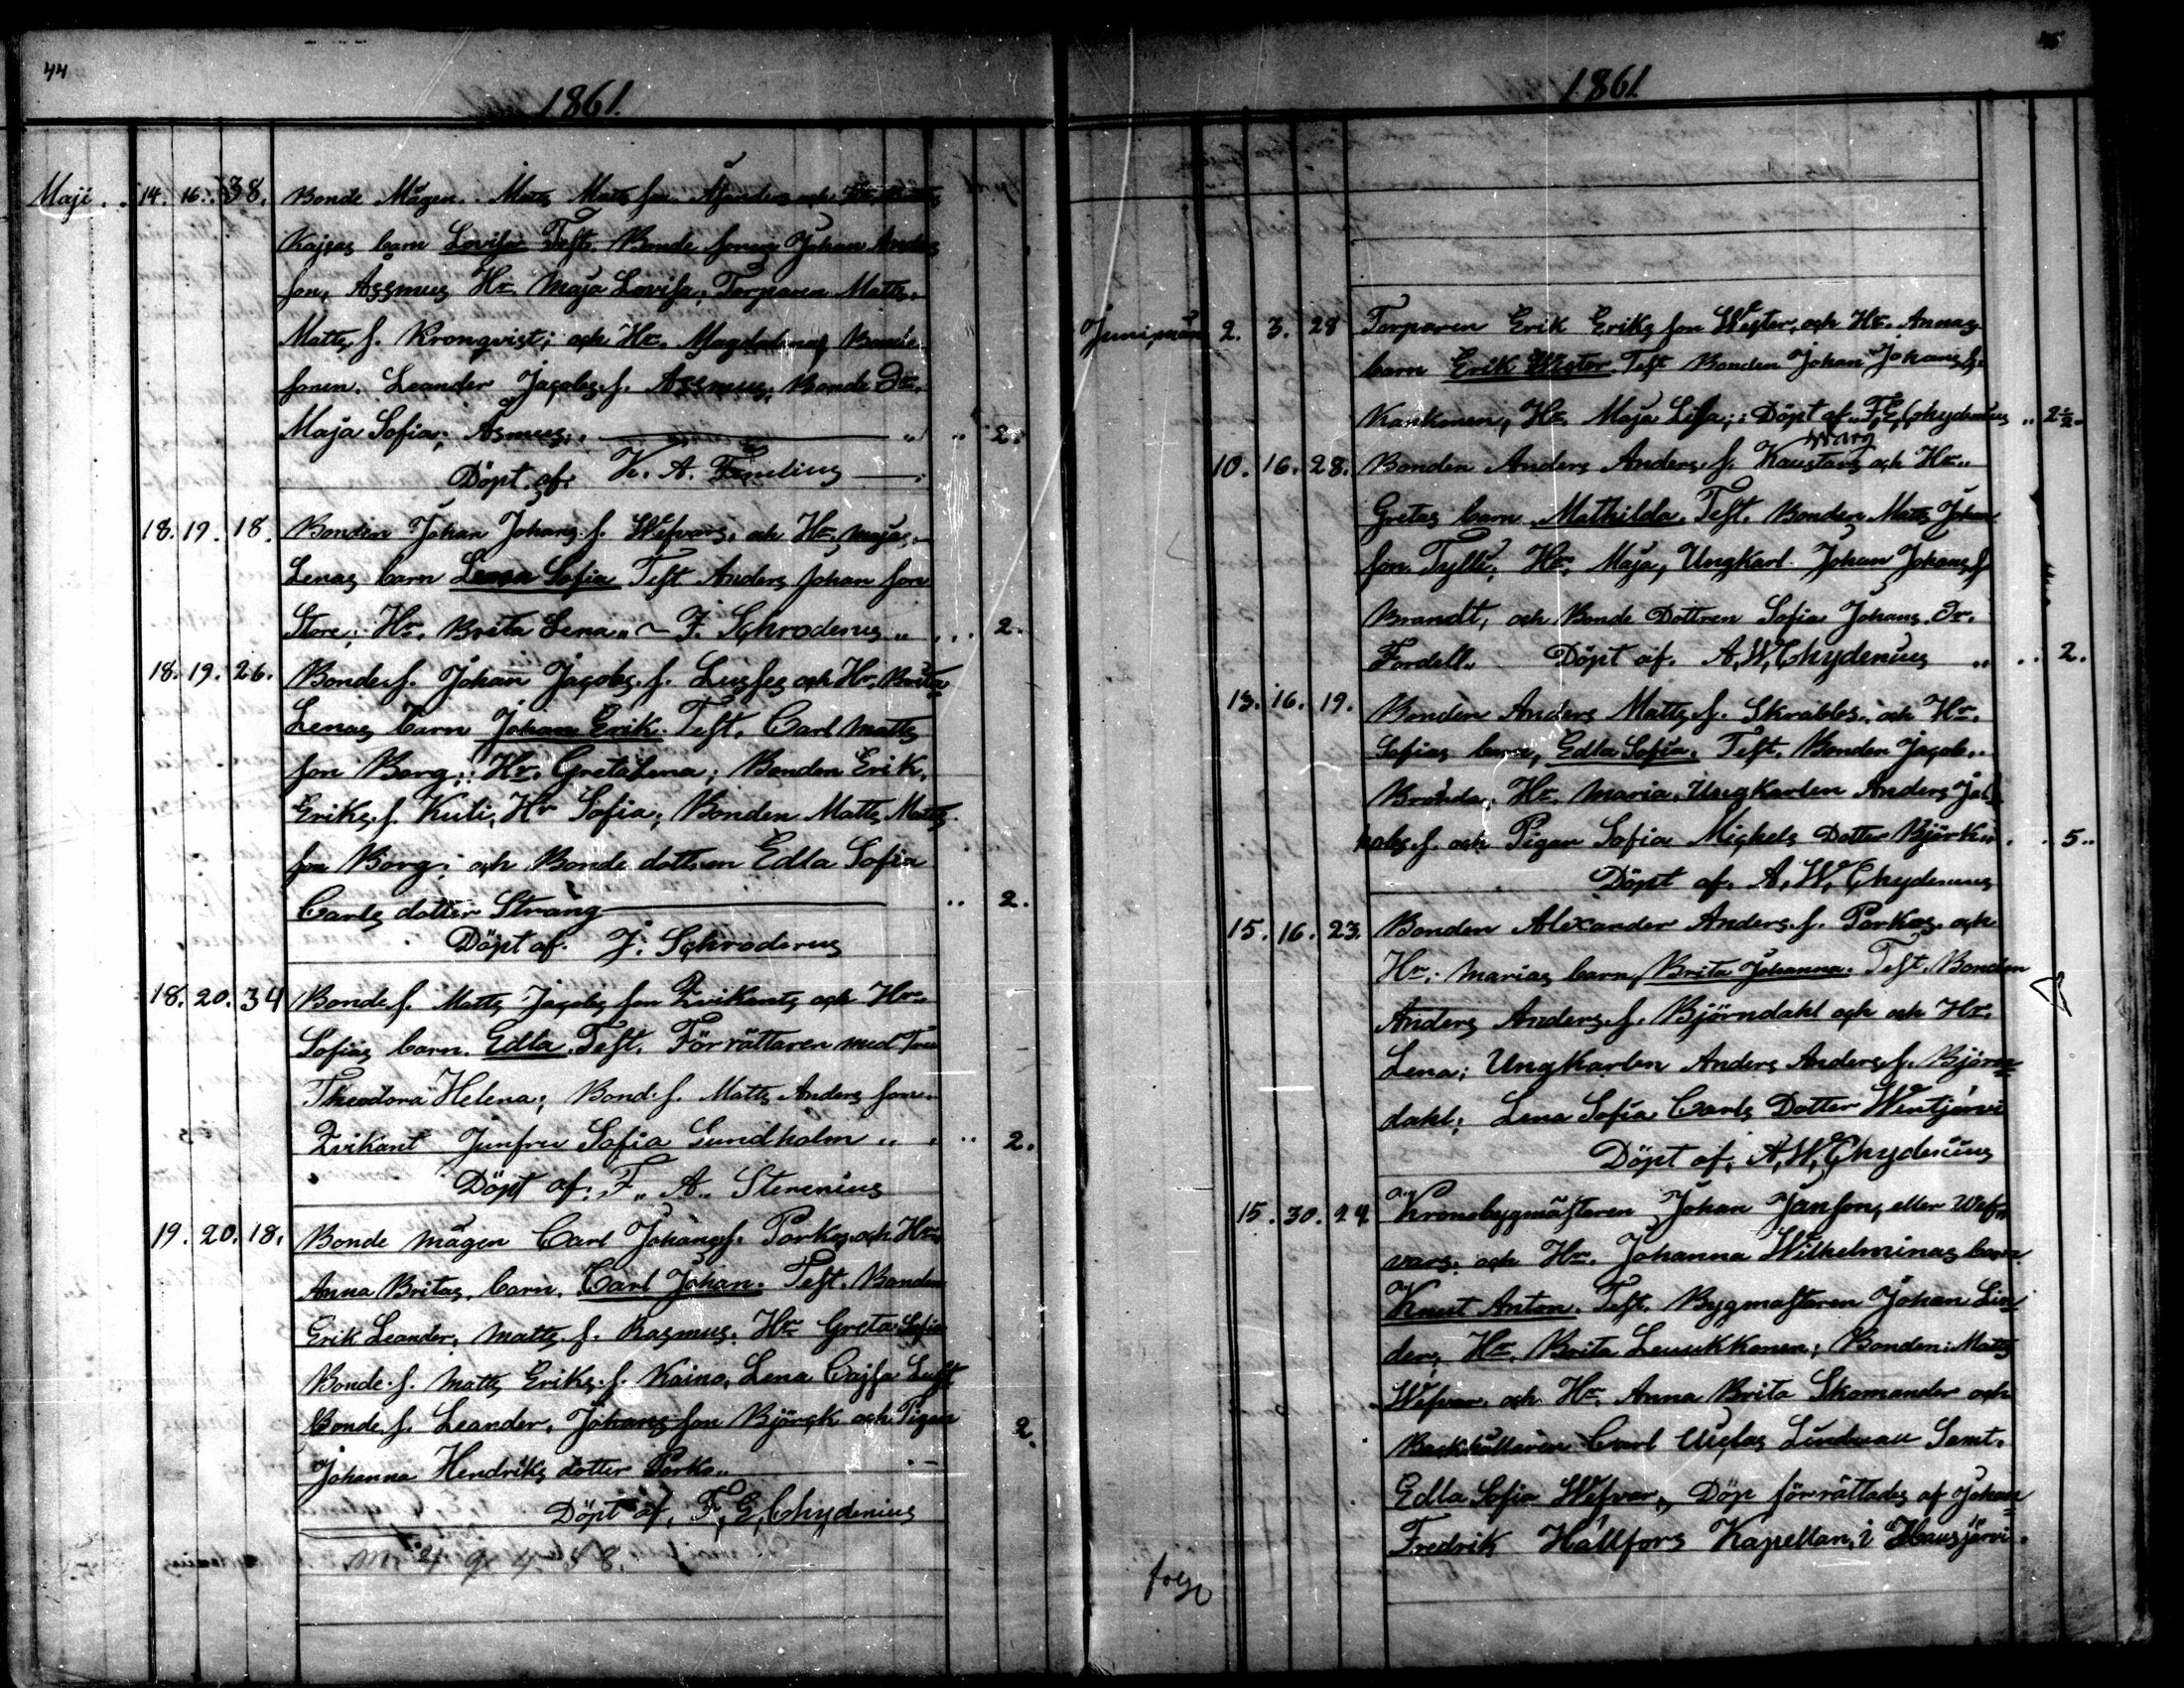 44
1861.
Maji . . 14. 16. 38. Bonde Mågen. Matts Matts son Åjanders och Hr
Kajsas barn Lovisa Test. Bonde sonen Johan Anders
son, Assmus Hr Maja Lovisa, Torparen Matts
Matts. s. Kronqvist; och Hr. Magdalena, Bonde
sonen. Leander Jacobs. s. Assmus, Bonde Dr.
Maja Sofia; Asmus. „ .. 2.
Döpt. af. K. A. Femlius
18. 19. 18. Bonden Johan Johans. s. Wefvars. och Hr. Majas
Lenas barn Lena Sofia Test Anders Johan son
Store; Hr. Brita Lena „ ~ J. Schroderus „ ... 2.
18. 19. 26. Bonde s. Johan Jacobs. s. och Hr. Britas
Lenas barn Johan Erik. Test. Carl Matts
son Borg; Hr. Greta Lena; Bonden Erik.
Eriks. s. Kuti, Hr Sofia; Bonden Matts Matts
son Borg; och Bonde dottren Edla Sofia
Carls dotter Strång .. 2.
Döpt af. J. Schroderus
18. 20. 34 Bonde s. Matts Jacobs son Zvikants och Hr.
Sofias barn. Edla. Test. Förrättaren med Fru
Theodora Helena; Bond. s. Matts Anders son
Zvikant Junfru Sofia Lundholm „ . .. 2.
Döpt af: F„ A„ Stenenius
19. 20. 18. Bonde mågen Carl Johans. s. Porkas och Hr.
Anna Britas. barn. Carl Johan. Test. Bonden
Erik Leander. Matts. s. Rasmus. Hr Greta Sofia
Bonde. s. Matts Eriks. s. Kaino, Lena Cajsa Luft
Bonde s. Leander, Johans son Björck och Pigan 2.
Johanna Hendriks dotter Porko„
Döpt af, F, E, Chydenius
1861
Junimån 2. 3. 28 Torparen Erik Eriks son Wester, och Hr. Annas
barn Erik Wictor Test Bonden Johan Johans s.
Kankonen, Hr. Maja Lisa; : Döpt af. F, E, Chydenius „ 2½
10. 16. 28. Bonden Anders Anders. s. Kaustars och Hr..
Gretas barn Mathilda. Test. Bonden Matts Johan
son Tylli, Hr, Maja, Ungkarl. Johan Johans. s
Brandt, och Bonde Dottren Sofia Johans. Dr.
Fordell. Döpt af. A, W, Chydenius „ .. 2.
13. 16. 19. Bonden Anders Matts. s. Skrabbs. och Hr.
Sofias barn, Edla Sofia. Test. Bonden Jacob..
Hr. Maria, Ungkarlen Anders Ja
kobs. s. och Pigan Sofia Mickels Dotter Björk . . 5..
Döpt af. A, W, Chydenius
15. 16. 23. Bonden Alexander Anders. s. Porkas. och
Hr: Marias barn, Brita Johanna. Test. Bonden
Anders Anders. s. Björndahl och och Hr.
Lena; Ungkarlen Anders Anders. s. Björn
dahl; Lena Sofia Carls Dotter Wentjärvi
Döpt af. A, W, Chydenius
15. 30. 29. Kronobygmästaren Johan Jansons, eller Wef
vars. och Hr. Johanna Wilhelminas barn
Knut Anton. Test. Bygmästaren Johan Lin
der, Hr. Brita Leuukkonen; Bonden: Matts
Wefvar och Hr. Anna Brita Skomander och
Carl Lindman Samt.
Edla Sofia Wefvar„ Döp förrättades af Johan
Fredrik Hällfors Kapellan, i Hausjärvi.